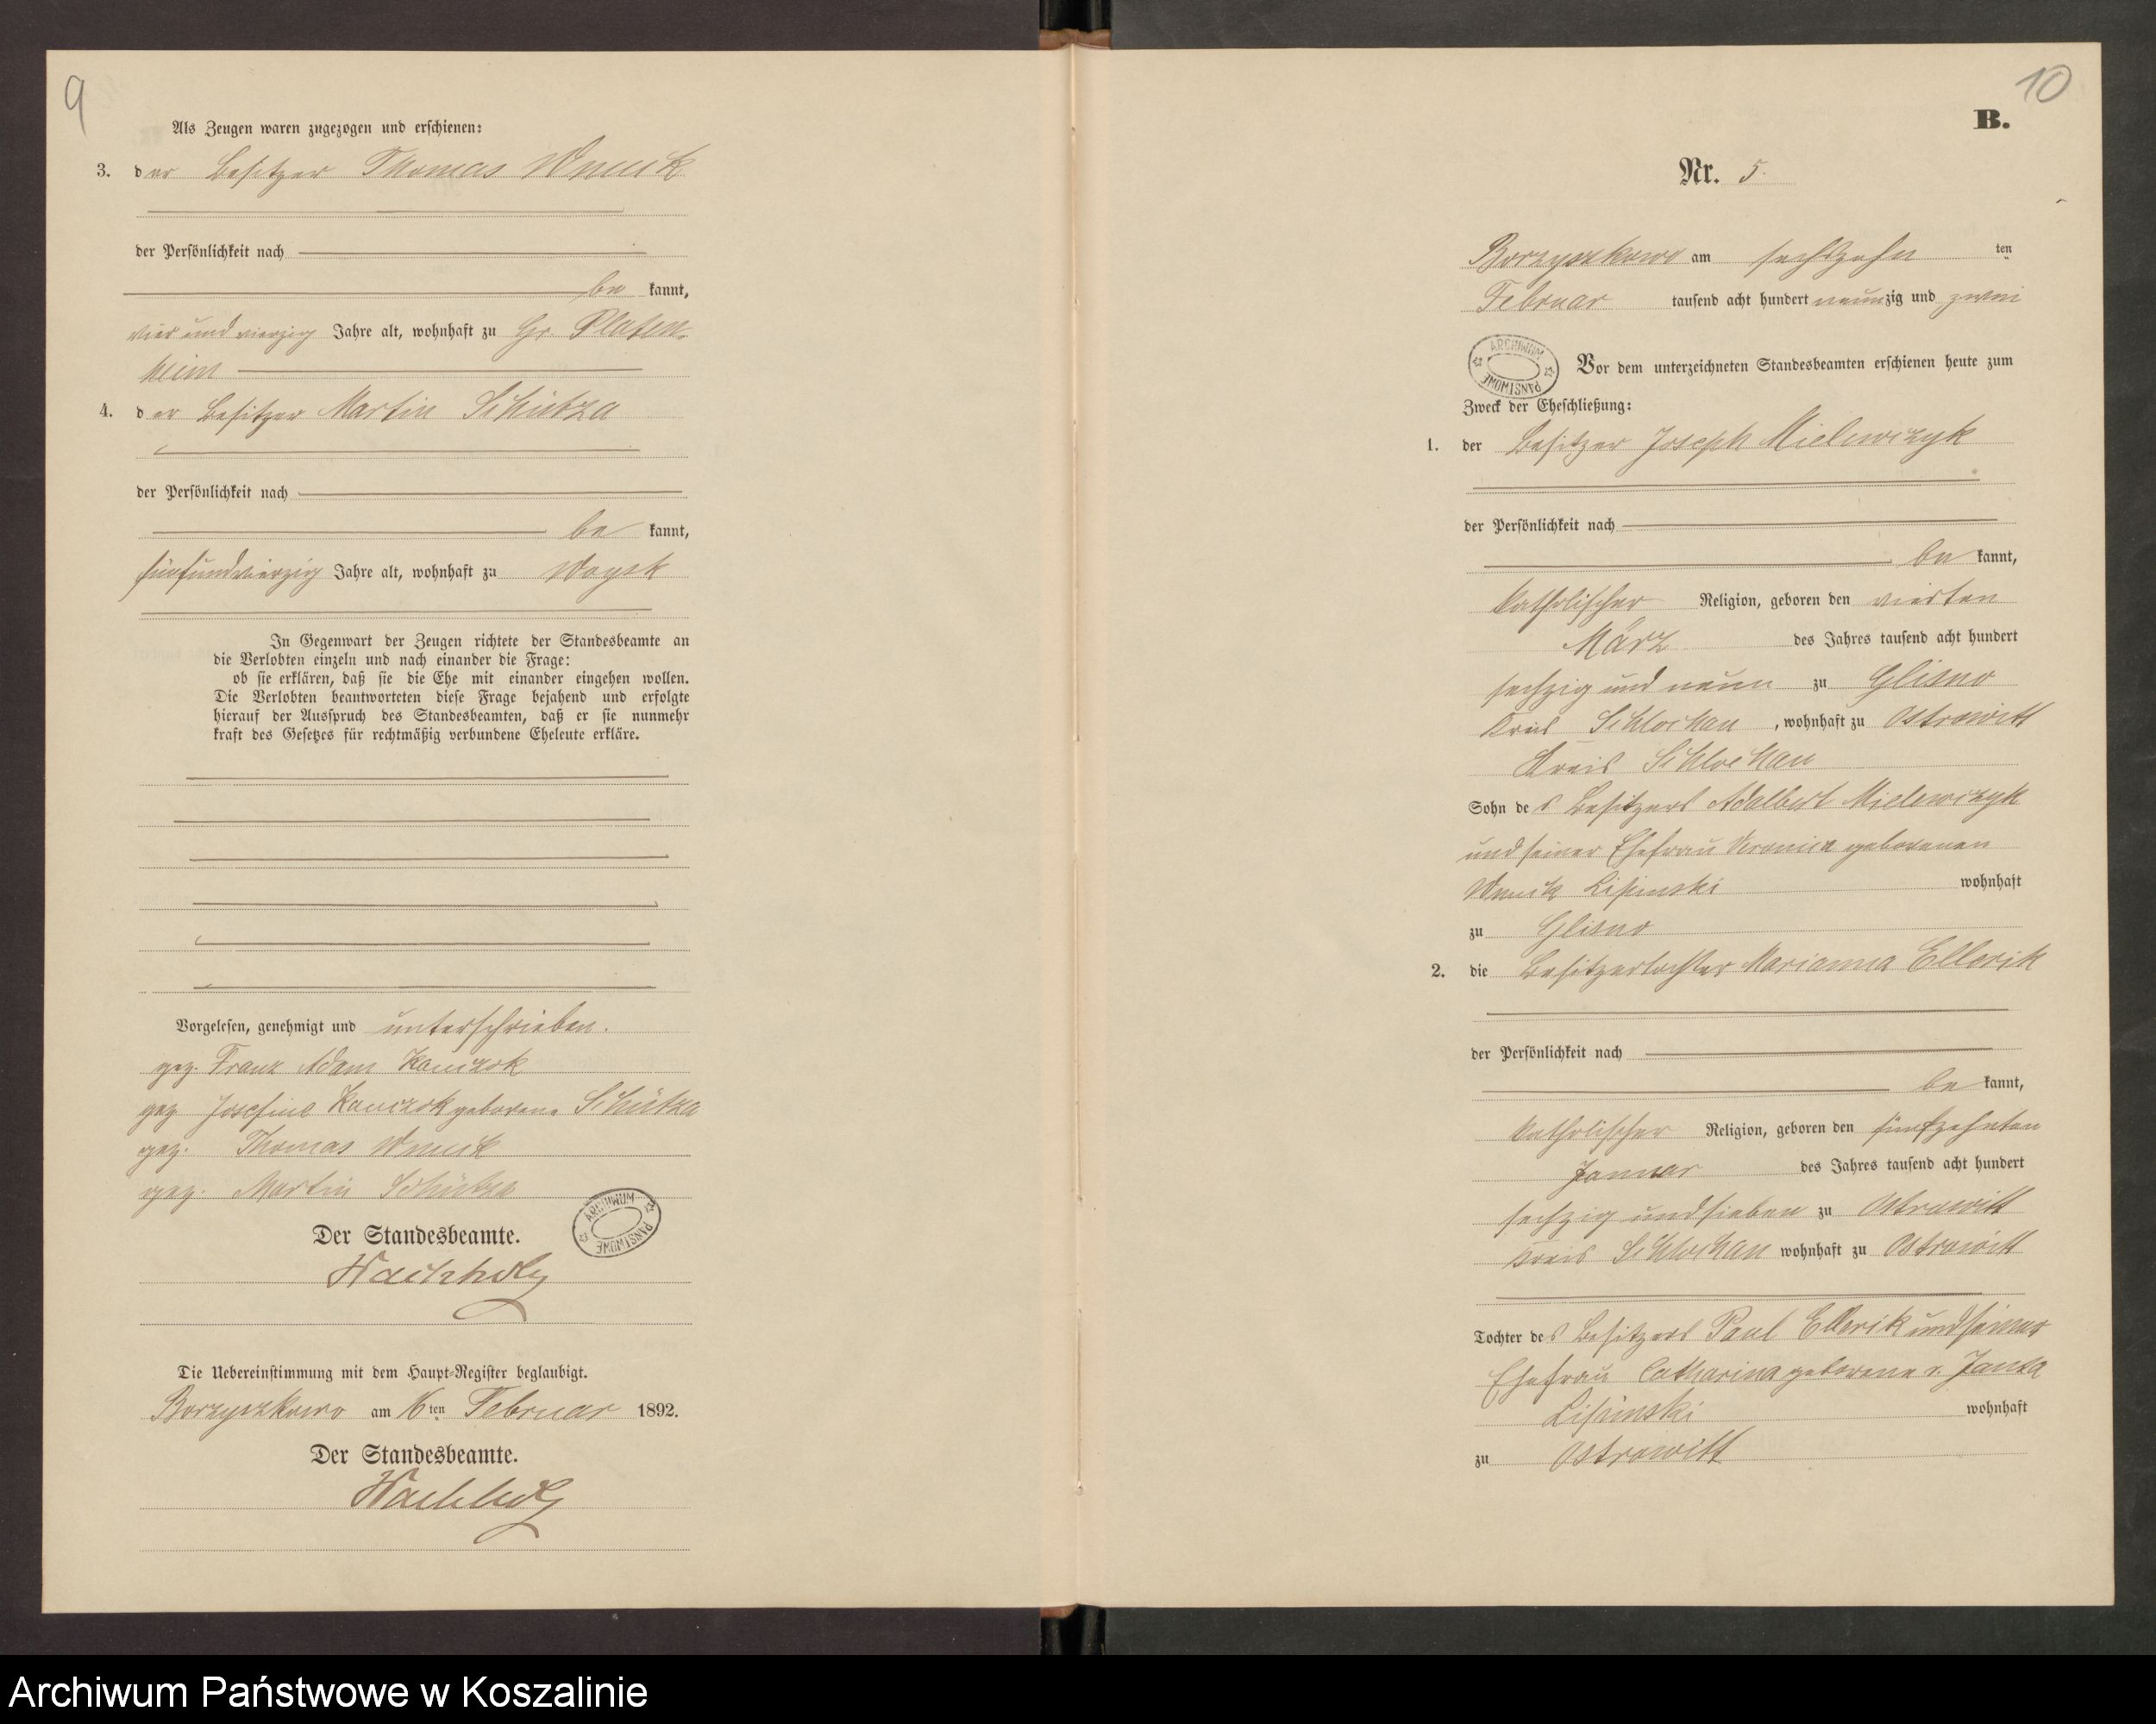 9
Als Zeugen waren zugezogen und erschienen:
3. der Besitzer Thomas Wnuck
der Persönlichkeit nach
be kannt,
vier und vierzig Jahre alt, wohnhaft zu Gr. Platen-
heim
4. der Besitzer Martin Schütza
der Persönlichkeit nach
be kannt,
fünfundvierzig Jahre alt, wohnhaft zu Woysk
In Gegenwart der Zeugen richtete der Standesbeamte an
die Verlobten einzeln und nach einander die Frage:
ob sie erklären, daß sie die Ehe mit einander eingehen wollen.
Die Verlobten beantworteten diese Frage bejahend und erfolgte
hierauf der Ausspruch des Standesbeamten, daß er sie nunmehr
kraft des Gesetzes für rechtmäßig verbundene Eheleute erkläre.
Vorgelesen, genehmigt und unterschrieben.
gez. Franz Adam Kanczok
gez Josefine Kanczok geborene Schütza
gez. Thomas Wnuck
gez. Martin Schütza
ARCHIWUM PAŃSTWOWE
Der Standesbeamte.
Wachholz
Die Uebereinstimmung mit dem Haupt-Register beglaubigt.
Borzyszkowo am 16 ten Februar 1892.
Der Standesbeamte.
Wachholz
10
B.
Nr. 5.
Borzyszkowo am sechszehn ten
Februar tausend acht hundert neunzig und zwei
ARCHIWUM PAŃSTWOWE
Vor dem unterzeichneten Standesbeamten erschienen heute zum
Zweck der Eheschließung:
1. der Besitzer Joseph Mielewczyk
der Persönlichkeit nach
be kannt,
katholischer Religion, geboren den vierten
März des Jahres tausend acht hundert
sechzig und neun zu Glisno
Kreis Schlochau, wohnhaft zu Ostrowitt
Kreis Schlochau
Sohn des Besitzers Adalbert Mielewczyk
und seiner Ehefrau Veronica geborenen
Wnuck Lipinski wohnhaft
zu Glisno
2. die Besitzertochter Marianna Ellerik
der Persönlichkeit nach
be kannt,
katholischer Religion, geboren den fünfzehnten
Januar des Jahres tausend acht hundert
sechzig und sieben zu Ostrowitt
Kreis Schlochau wohnhaft zu Ostrowitt
Tochter des Besitzers Paul Ellerik und seiner
Ehefrau Catharina geborene v. Janta
Lipinski wohnhaft
zu Ostrowitt
Archiwum Państwowe w Koszalinie